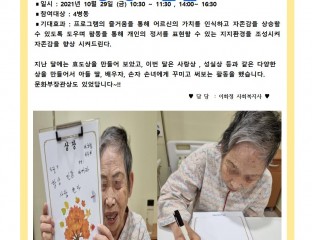 ■ 일시 : 2021년 10월 29일 (금) 10:30 ~ 11:30 , 14:00~ 16:30
■ 참여대상 : 4병동
■ 기대효과 : 프로그램의 즐거움을 통해 어르신의 가치를 인식하고 자존감을 상승할
수 있도록 도우며 활동을 통해 개인의 정서를 표현할 수 있는 지지환경을 조성시켜
자존감을 향상 시켜드린다.
지난 달에는 효도상을 만들어 보았고, 이번 달은 사랑상 , 성실상 등과 같은 다양한
상을 만들어서 아들 딸, 배우자, 손자 손녀에게 꾸미고 써보는 활동을 했습니다.
문화부장관상도 있었답니다~!!
♥ 담 당 : 이화정 사회복지사 ♥
상장